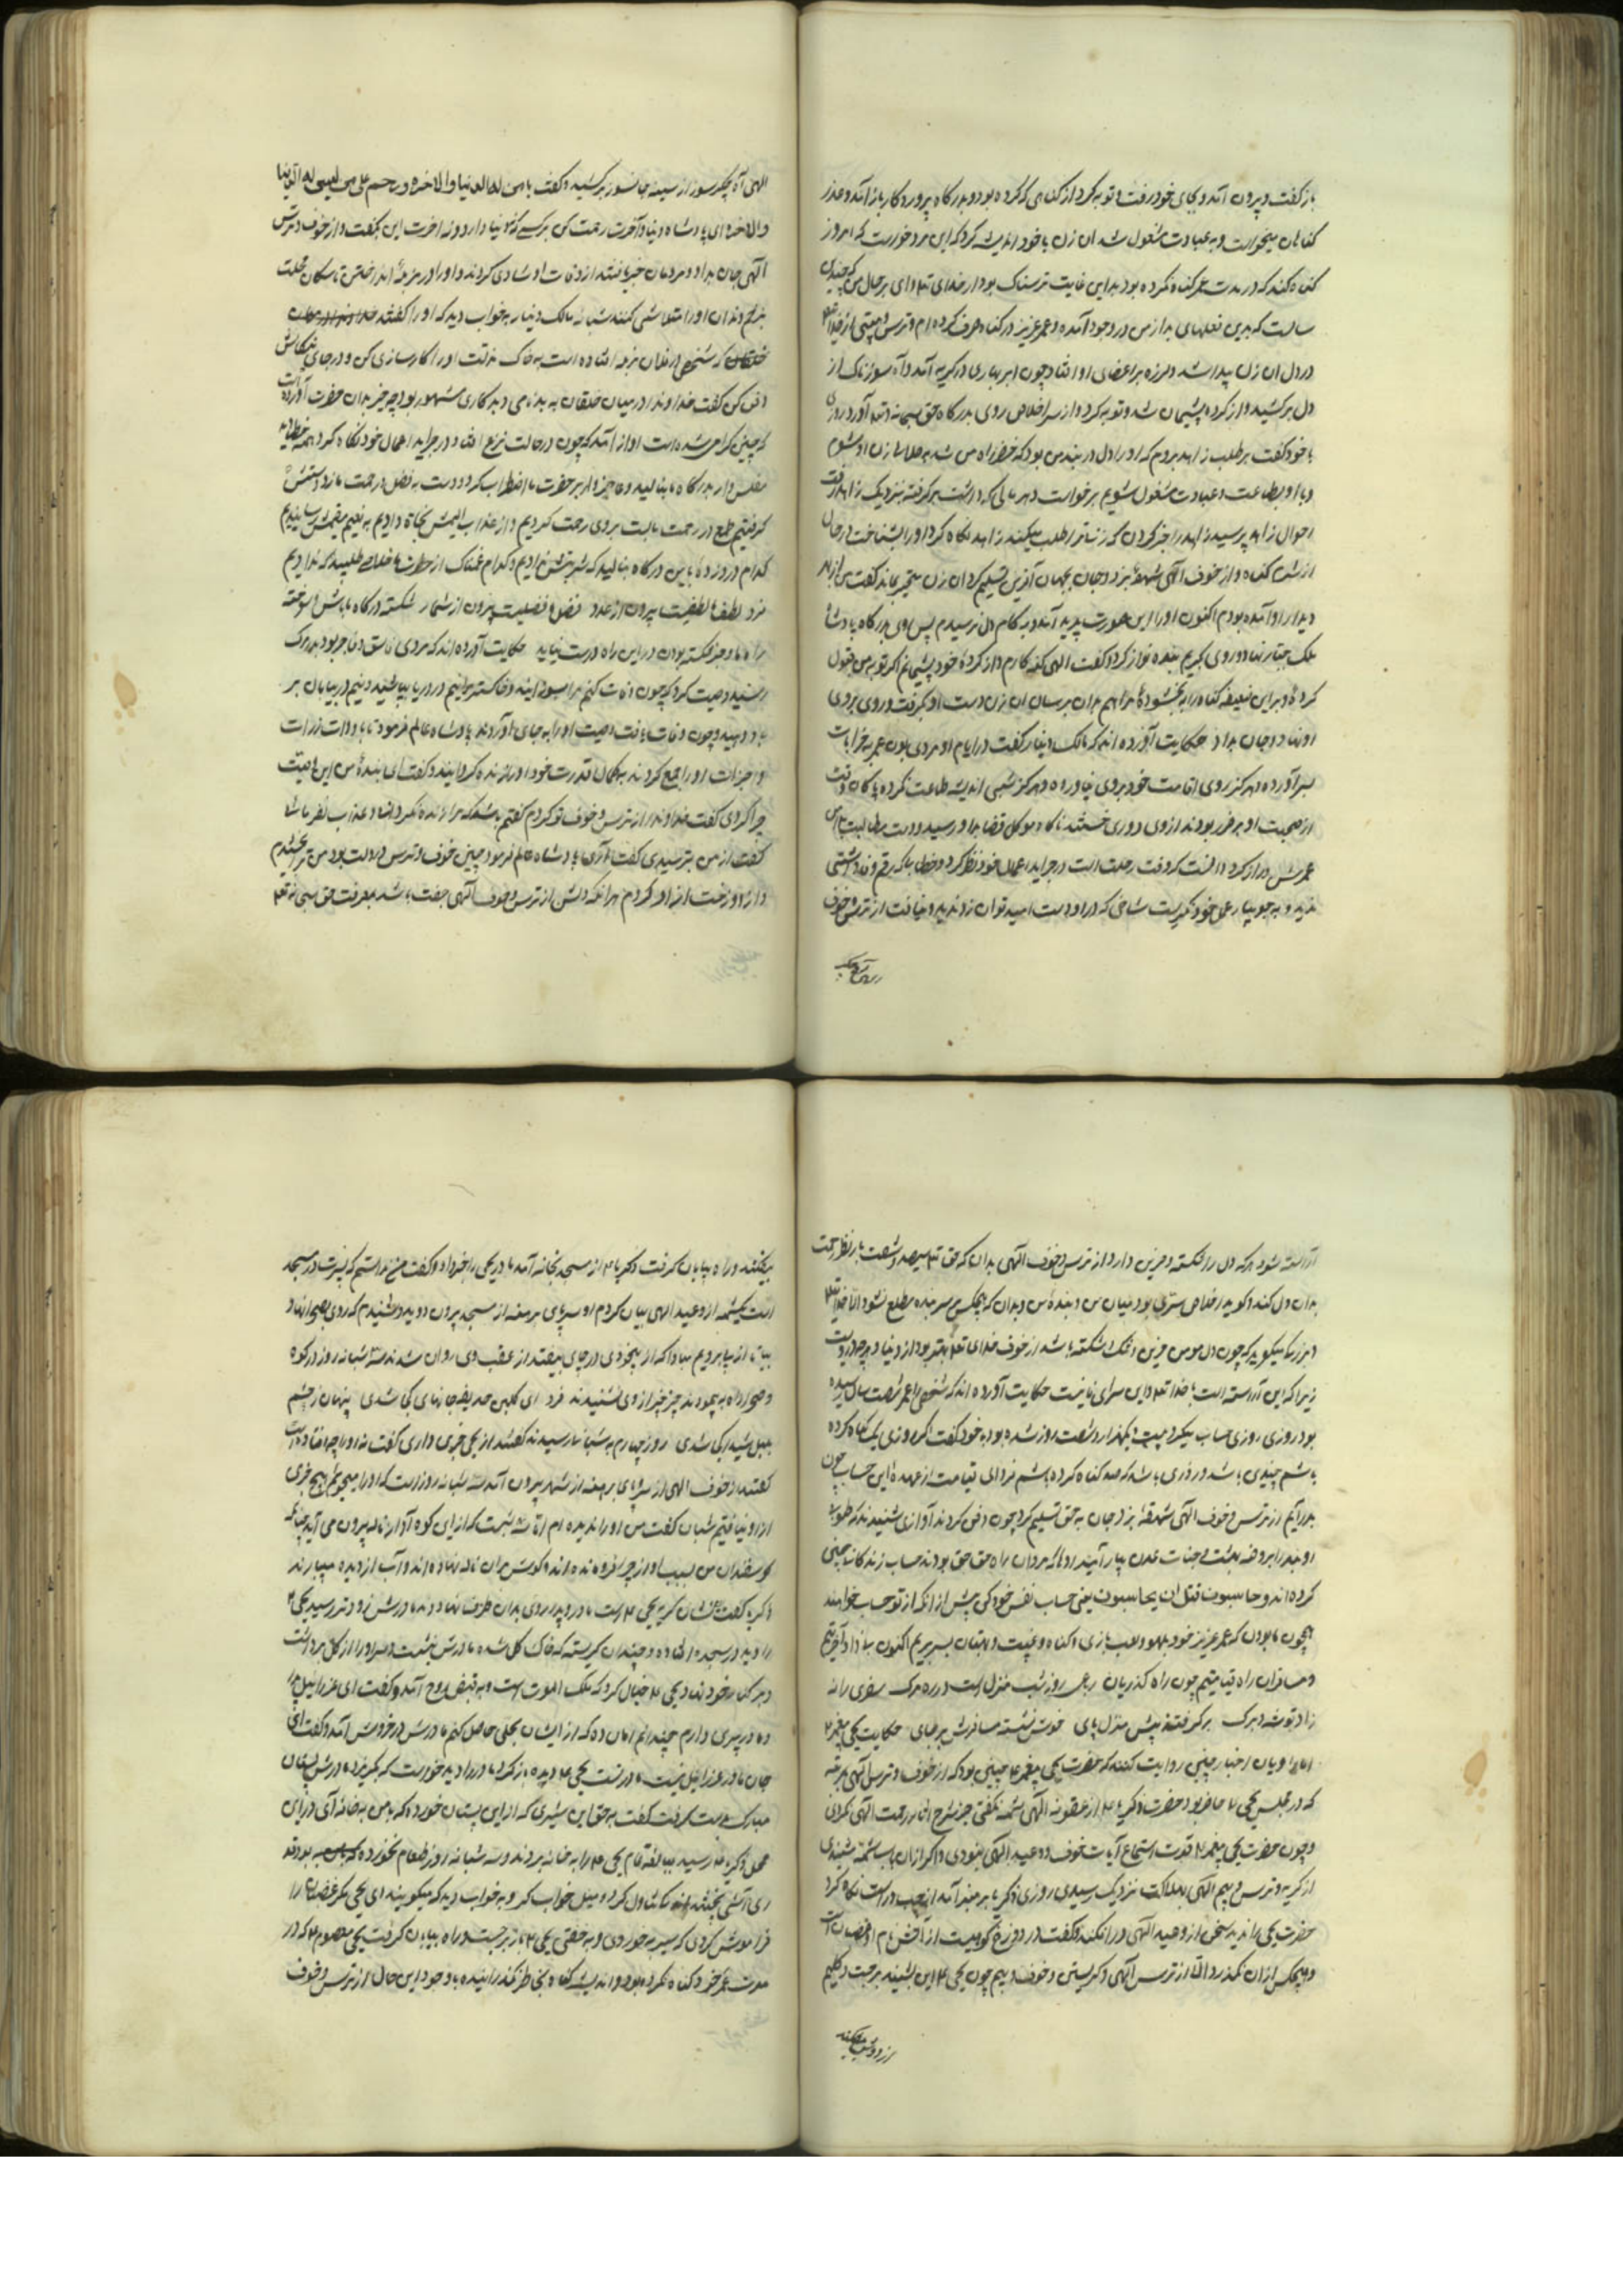 باز گفت و بیرون آمد و بجای خود رفت و توبه کرد از گناهی که کرده بود و بدرگاه پروردگار باز آمد و عذر
گناهان میخواست و به عبادت مشغول شد ان زن با خود اندیشه کرد که این مرد خواست که امروز
گناه کند که در مدت عمر گناه نکرده بود بدین غایت ترسناک بود از خدای تعالی وای بر حال من که چندین
سالست که بدین فعلهای بد از من در وجود آمده و عمر عزیز در گناه صرف کرده ام و ترس و
در دل ان زن پیدا شد و لرزه بر اعضای او افتاد و چون ابر بهاری در گریه آمد و آه سوزناک از
دل بر کشید و از کرده پشیمان شد و توبه کرد و از سر اخلاص روی بدرگاه حق سبحانه و تعالی آورد روزی
با خود گفت بر طلب زاهد بروم که او را دل در بند من بود که خضر راه من شد به حلال زن او شوم
و با او بطاعت و عبادت مشغول شویم برخواست و هر مالی که داشت بر گرفته نزدیک زاهد رفت
احوال زاهد پرسید زاهد را خبر کردن که زنی ترا طلب میکند زاهد نگاه کرد او را بشناخت در حال
از شرم گناه و از خوف الهی شهقه بزد و جان بجهان آفرین تسلیم کرد ان زن متحیر بماند گفت من از بهر
دیدار او آمده بودم اکنون او را این صورت پدید آمد و به کام دل نرسیدم پس روی بدرگاه پادشاه
ملک جبار نهاد و روی بکریم بنده نواز کرد و گفت الهی گنه کارم و از کرده خود پشیمانم اگر توبه من قبول
کرده و بر این ضعیفه گناه را به بخشوده مرا هم بدان برسان ان زن دست او بگرفت و روی بر روی
او نهاد و جان بداد حکایت آورده اند که مالک دینار گفت در ایام او مردی بود عمر به خرابات
بسر آورده و هرگز روی اقامت خود بروی نیاورده و هرگز شبی اندیشه طاعت نکرده پاکان وقت
از صحبت او بر حذر بودند از وی دوری جستند ناگاه موکل قضا بدو رسید و دست مطالبت به دامن
عمرش دراز کرد دانست که وقت رحلت است در جراید اعمال خود نظر کرد و خطی پاک رقم و نه داشتی
ندید و به جویبار عمل خود نگریست شاخی که در او دست امید توان زد ندید و نیافت از ترس و خوف
الهی آه جگر سوز از سینه جانسوز بر کشید و گفت یا من له الدنیا والاخره ورحم علی من لیس له الدنیا
والاخره ای پادشاه دنیا و آخرت رحمت کن بر کسی که نه دنیا دارد و نه اخرت این بگفت و از خوف و ترس
الهی جان بداد و مردمان خبر یافتند از وفات او شادی کردند و او را در مزبله انداختن تا سگان محلت
بدرند و ان او را متلاشی کنند شبانه مالک دینار به خواب دید که او را گفتند
که شخصی از فلان مزبله افتاده است به خاک مذلت او را کارسازی کن و در جای نیکانش
دفن کن گفت خداوندا در میان خلقان به بدنامی و بدکاری مشهور بود چه خبر بدان حضرت آورده است
که چنین گرامی شده است اواز آمد که چون در حالت نزع افتاد و در جراید اعمال خود نگاه کرد همه خطا دید
مفلس وار بدرگاه ما بنالید و عاجز وار بر حضرت ما اضطراب کرد و دست به فضل و رحمت ما زد دستش
گرفتیم طمع در رحمت ما بست بر وی رحمت کردیم و از عذاب الیمش نجاة دادیم به نعیم مقیمش رسانیدیم
کدام درد زده با این درگاه بنالید که شربتش ندادیم و کدام غمناک از حضرت ما خلاصی طلبید که ندادیم
فرد لطف ما لطفیست بیرون از عدد فضل و فضلیست بیرون از شمار شکسته درگاه ما باش و سوخته
راه ما و جز شکسته بودن در این راه درست نیاید حکایت آورده اند که مردی فاسق و فاجر بود به مرگ
رسید وصیت کرد که چون وفات کنم مرا بسوزانید و خاکستر مرا نیم در دریا بپاشید و نیم در بیابان بر
باد دهید و چون وفات یافت وصیت او را به جای آوردند پادشاه عالم فرمود تا باد ذات ذرات
و اجزات او را جمع کردند به کمال قدرت خود او را زنده گردانید و گفت ای بنده من این وصیت
چرا کردی گفت خداوندا از ترس و خوف تو کردم گفتم باشد که مرا زنده نگردانند و عذاب نفرمایند
گفت از من بترسیدی گفت آری پادشاه عالم فرمود چنین خوف و ترس در دلت بود من ترا بخشیدم
و از دوزخت ازاد کردم هر انکه دلش از ترس و خوف الهی جفت باشد به معرفت حق سبحانه و تعالی
آراسته شود هر که دل را شکسته و حزین دارد از ترس و خوف الهی بدان که حق تعالی سیصد و شصت بار نظر رحمت
بدان دل کند و گوید اخلاص سری بود میان من و بنده من و بدان که هیچکس بر سر بنده مطلع نشود الا خدایتعالی
و بزرگان میگوید که چون دل مومن حزین و غمناک و شکسته باشد از خوف خدای تعالی بهتر بود از دنیا و هر چه در اوست
زیرا که این آراسته است با خدا تعالی و این سرای فانیست حکایت آورده اند که شخصی را عمر شصت سال رسیده
بود روزی روزی حساب میکرد بیست و یکهزار و شصت روز شده بود به خود گفت اگر روزی یک گناه کرده
باشم چندی باشد و روزی باشد که صد گناه کرده باشم فردای قیامت از عهده این حساب چون
بدر آیم از ترس و خوف الهی شهقه بزد و جان به حق تسلیم کرد چون دفن کردند آوازی شنیدند که طوبی
او بنده را بروضه بهشت و جنات عدن بیارائید اری که مردان راه حق حق بودند حساب زندگانی چنین
کرده اند و حاسبوا قبل ان یحاسبوا یعنی حساب نفس خود کن پیش از انکه از تو حساب خواهند
همچون ما بودن که عمر عزیز خود بلهو و لعب بازی و گناه و غیبت و بهتان بسر بریم اکنون ساز داد آخرتیم
و مسافران راه قیامتیم چون راه گذریان رباعی روز شب منزل است و ره مرگ سفری را نه
زاد توشه و برگ بر گرفتند پیش منزل پای خوش نشسته مسافرش بر جای حکایت یحیی پیغمبر
اما راویان اخبار چنین روایت کنند که حضرت یحیی پیغمبر چنین بود که از خوف و ترس الهی بمرتبه
که در مجلس یحیی حاضر بود حضرت ذکریا از عقوبة الهی شمه نگفتی جز شرح اثار رحمت الهی نکردی
و چون حضرت یحیی پیغمبر قدرت استماع آیات خوف و وعید الهی نبودی و اگر از ان باب شمه شنیدی
از گریه و ترس و بیم الهی بهلاکت نزدیک رسیدی روزی ذکریا بر منبر آمد از چپ و راست نگاه کرد
حضرت یحیی را ندید سخن از وعید الهی در افکند و گفت در دوزخ کوهیست از آتش نام او غضبان است
و هیچکس از ان نگذرد الا از ترس الهی و گریستن و خوف و بیم چون یحیی این بشنید برجست و گلیم
بیفکند و راه بیابان گرفت ذکریا از مسجد بخانه آمد مادر یحیی را خبر داد و گفت من ندانستم که پسرت در مسجد
است یک شمه از وعید الهی بیان کردم او سر و پای برهنه از مسجد بیرون دوید و شنیدم که روی بصحرا نهاد
بیا تا از پی برویم مبادا که از بیخودی در چاهی بیفتد از عقب وی روان شدند سه شبانه روز در کوه
و صحرا راه به پیمودند خبر از وی نشنیدند فرد ای گلبن حدیقه جانهای کی شدی پنهان ز چشم
بلبل شیدا کی شدی روز چهارم به شبانی رسیدند گفتند از یحیی خبری داری گفت نه او را چه افتاده است
گفتند از خوف الهی از سر و پای برهنه از شهر بیرون آمد سه شبانه روز است که او را میجویم هیچ خبری
از او نیافتیم شبان گفت من او را ندیده ام اما سه شبست که از این کوه آواز ناله بیرون می آید چنانکه
گوسفندان من بسبب اواز چرا فرو مانده اند و گوش بران ناله نهاده اند و آب از دیده میبارند
ذکریا گفت نشان گریه یحیی است مادر و پدر روی بدان طرف نهادند مادرش زودتر رسید یحیی
را دید در سجده افتاده و چندان گریسته که خاک گل شده مادرش بنشست و سر او را از گل برداشت
و بر کنار خود نهاد یحیی خیال کرد که ملک الموت است و به قبض روح آمده گفت ای عزراییل مرا
ده مادر پیری دارم چندانم امان ده که از ایشان بحلی حاصل کنم مادرش در خروش آمد و گفت ای
جان مادر عزراییل نیست مادر تست یحیی دیده باز کرد مادر را دید خواست که بگریزد مادرش پستان
مبارک بدست گرفت گفت به حق این شیری که از این پستان خورده که با من به خانه آی در این
محل ذکریا رسید مبالغه تمام یحیی را به خانه بردند و سه شبانه روز طعام نخورده که بود قدری
آشی پختند تناول کرد و میل خواب کرد و به خواب دید که میگویند ای یحیی مگر غضبان را
فراموش کردی که سیر به خوردی و به خفتی یحیی از برجست و راه بیابان گرفت یحیی معصوم که در
مدت عمر خود گناه نکرده بود و اندیشه گناه بخاطر نگذرانیده با وجود این حال از ترس و خوف